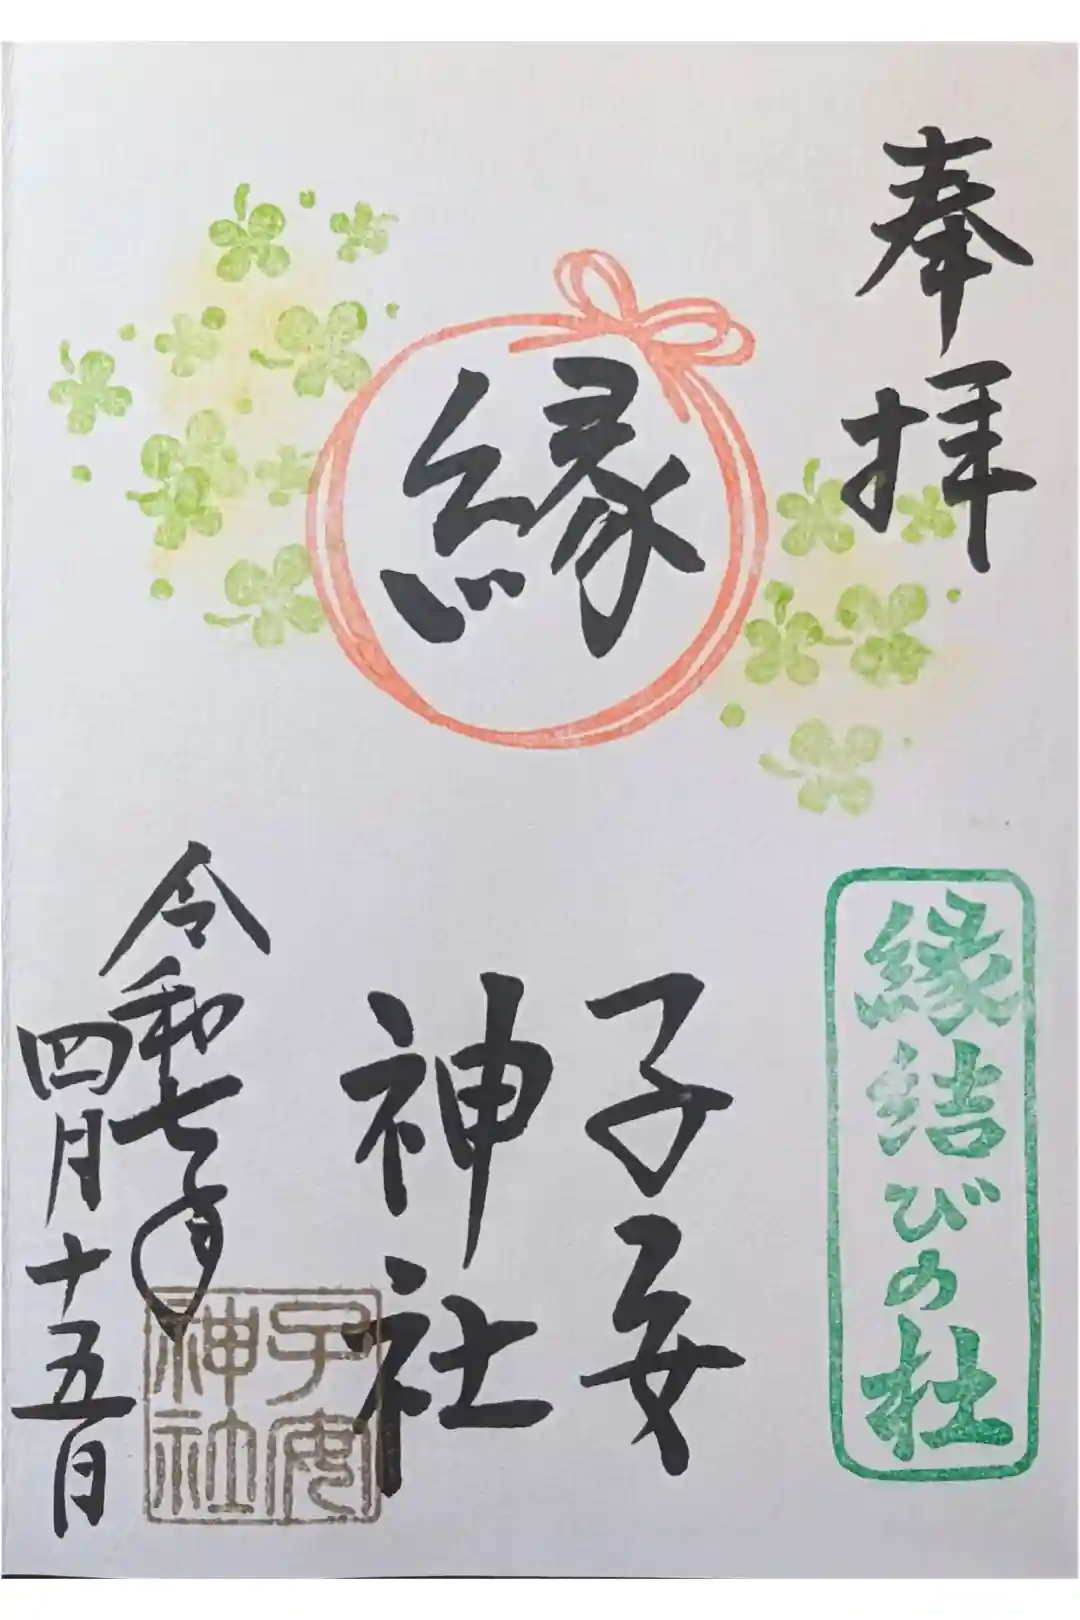 奉拝
縁結びの杜
縁
子安
神社
子安
神社
令和七年
四月十五日